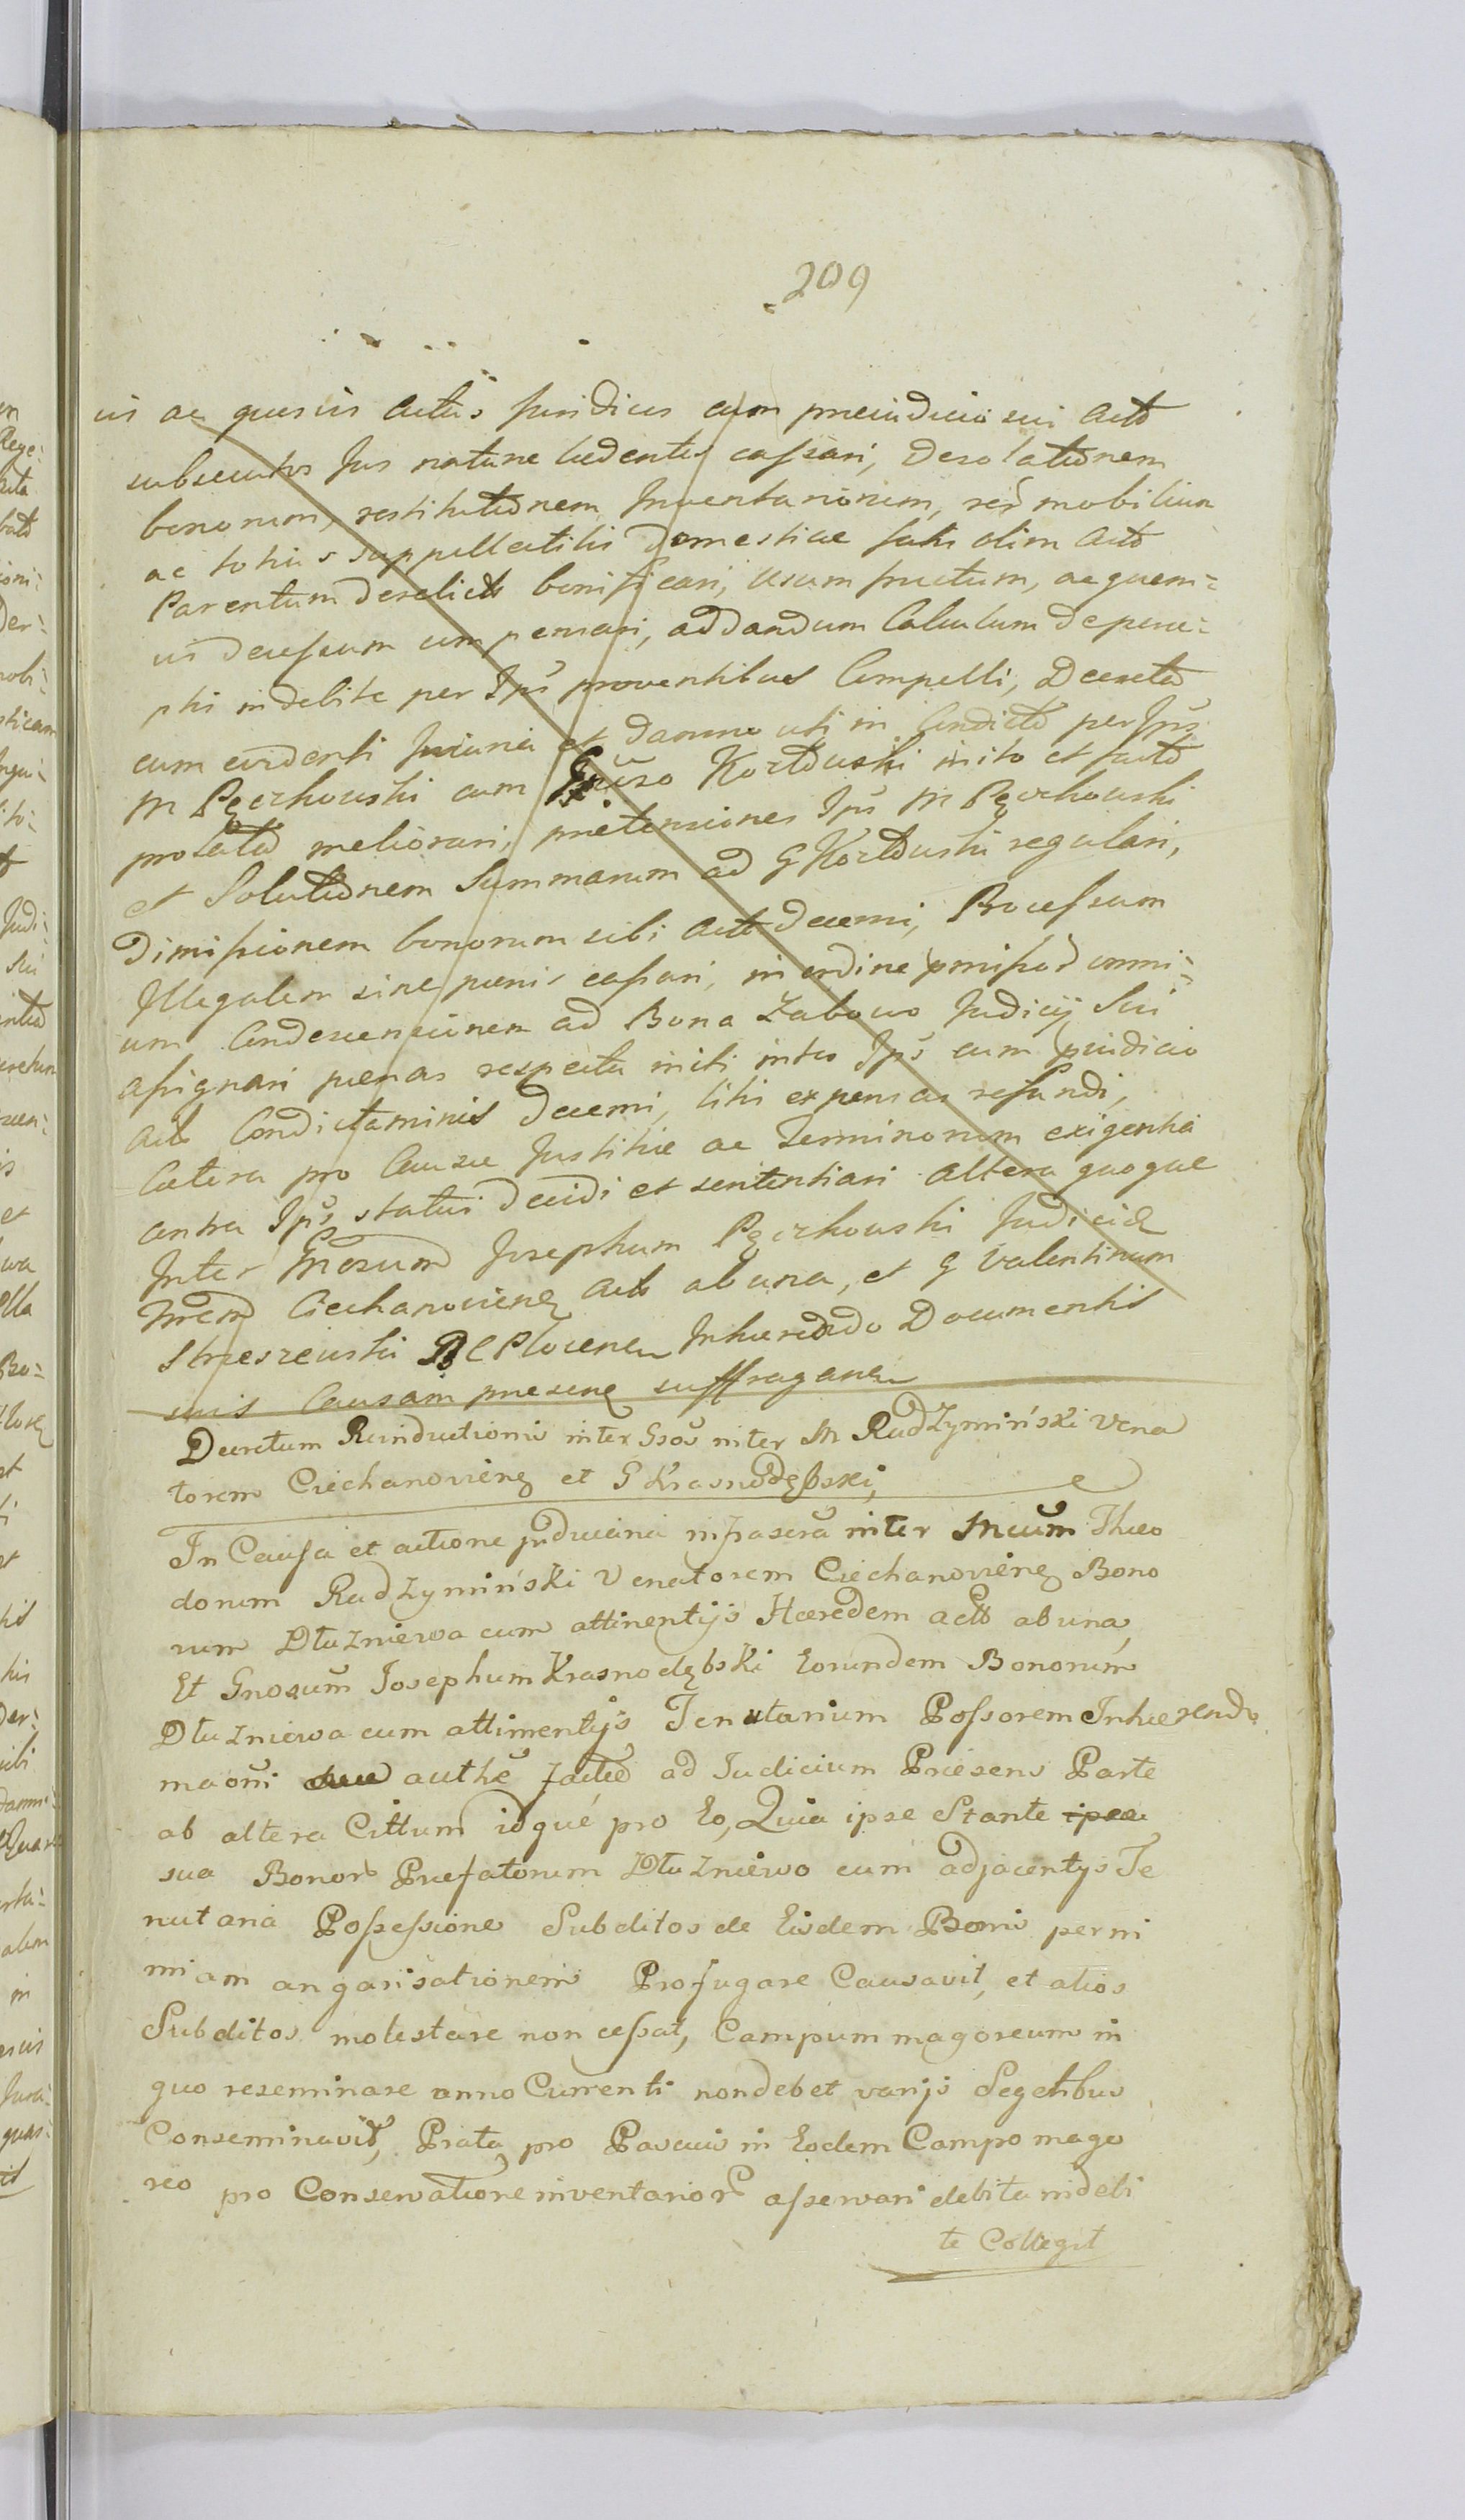 209
us ac quevis actus Juridicus cum preiudicio sui Acto
subsecutos Jus nature ledentes cassari, Desolationem
bonorum, restitutionem Inventariorum, rer mobilium
ac totius suppellectilis Domesticae fatis olim Acto
Parentum Derelict bonificari, Usum fructum, ac quem=
vis decessum compensari, ad dandum Calculum de perce=
ptis indebite per Ips proventibus Compelli, Decreta
cum evidenti Iniuria et Damno uti in Condicto per Ips
M Pęczkowski cum Kortduski inito et facto
prolata meliorari, pretensiones Ips M Pęczkowski
et Solutionem Summarum ad G Kortduski regulari,
Dimissionem bonorum sibi Acto decerni, Processum
Illegalem sine penis cassari, in ordine pmissor omni=
um Condescensionem ad Bona Zabowo Judicij Sui
assignari penas respectu initi inter Ips cum pjudicio
Acto Condictaminis decerni, litis expensas refundi,
Cetera pro Causae Justitia ac Terminorum exigentia
contra Ips statui decidi et sententiari altera quoque
Inter Josephum Pęczkowski Judicia
Ciechanovien Acto ab una, et G Valentinum
Strzeszewski Plocenen Inherendo Documentis
suis Causam presen suffraganen
Decretum Reinductionis inter Gsos inter M Radzymiński Vena
torem Ciechanovienę et G Krasnodębski,
In Causa et actione jnducina infrascra inter Mcum Theo
dorum Radzymiński Venatorem Ciechanovienę Bono
rum Dłużniewa cum attinentijs Haeredem actt ab una,
Et Gnosum Josephum Krasnodębski Eorundem Bonorum
Dłużniewa cum attimentijs Tenutarium Possorem Inhaerendo
maoni authe factae ad Iudicium Praesens Parte
ab altera Cittum idque pro Eo, Quia ipse Stante ipea
sua Bonor Praefatorum Dłużniewo cum adjacentijs Te
nutaria Possessione Subditos de Eisdem Bonis per ni
miam angarisationem Profugare Causavit, et alios
Subditos molestare non cessat, Campum magoreum in
quo reseminare anno Currenti non debet varijs Segetibus
Conseminavit, Prata pro Pascuis in Eodem Campo mago
reo pro Conservatione inventarior asservari debita indebi
te Collegit